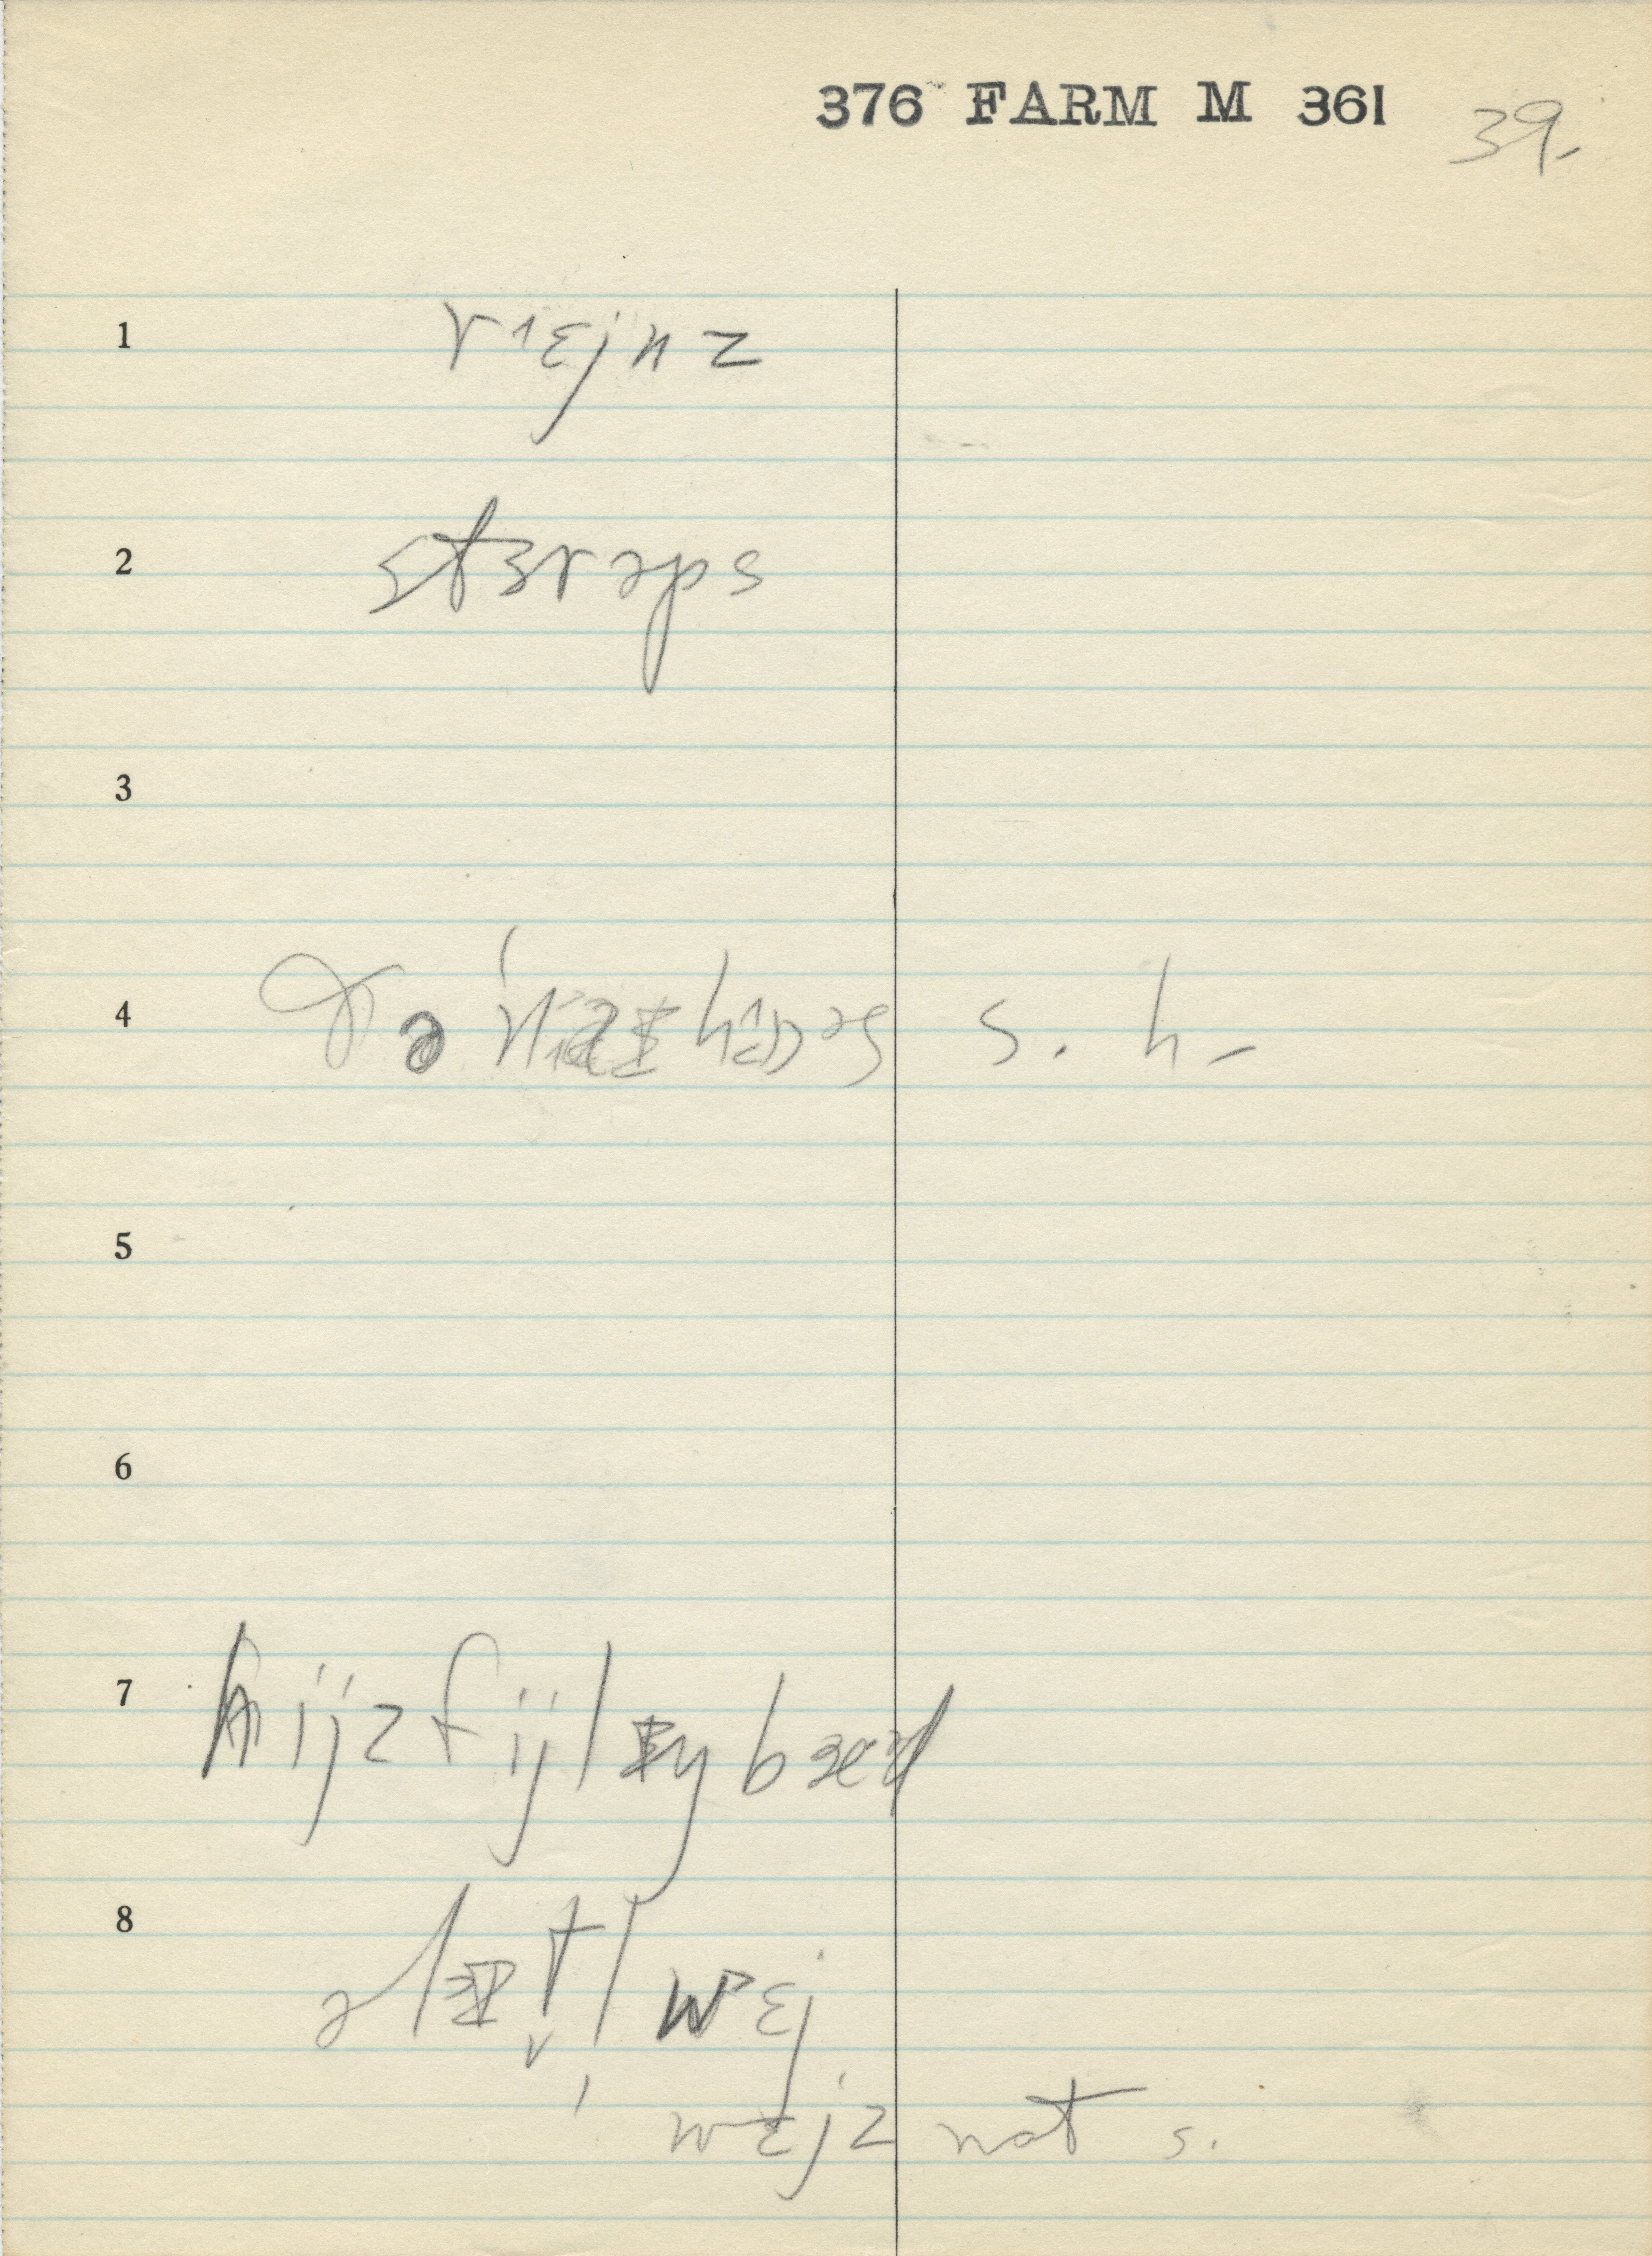 376 FARM M 361 39.
1 rɛjnz
2 stɜrəps
3
4 ðə s. h.
5
6
7 hijz fijlɪŋ bæd
8 wɛj
wɛjz not s.